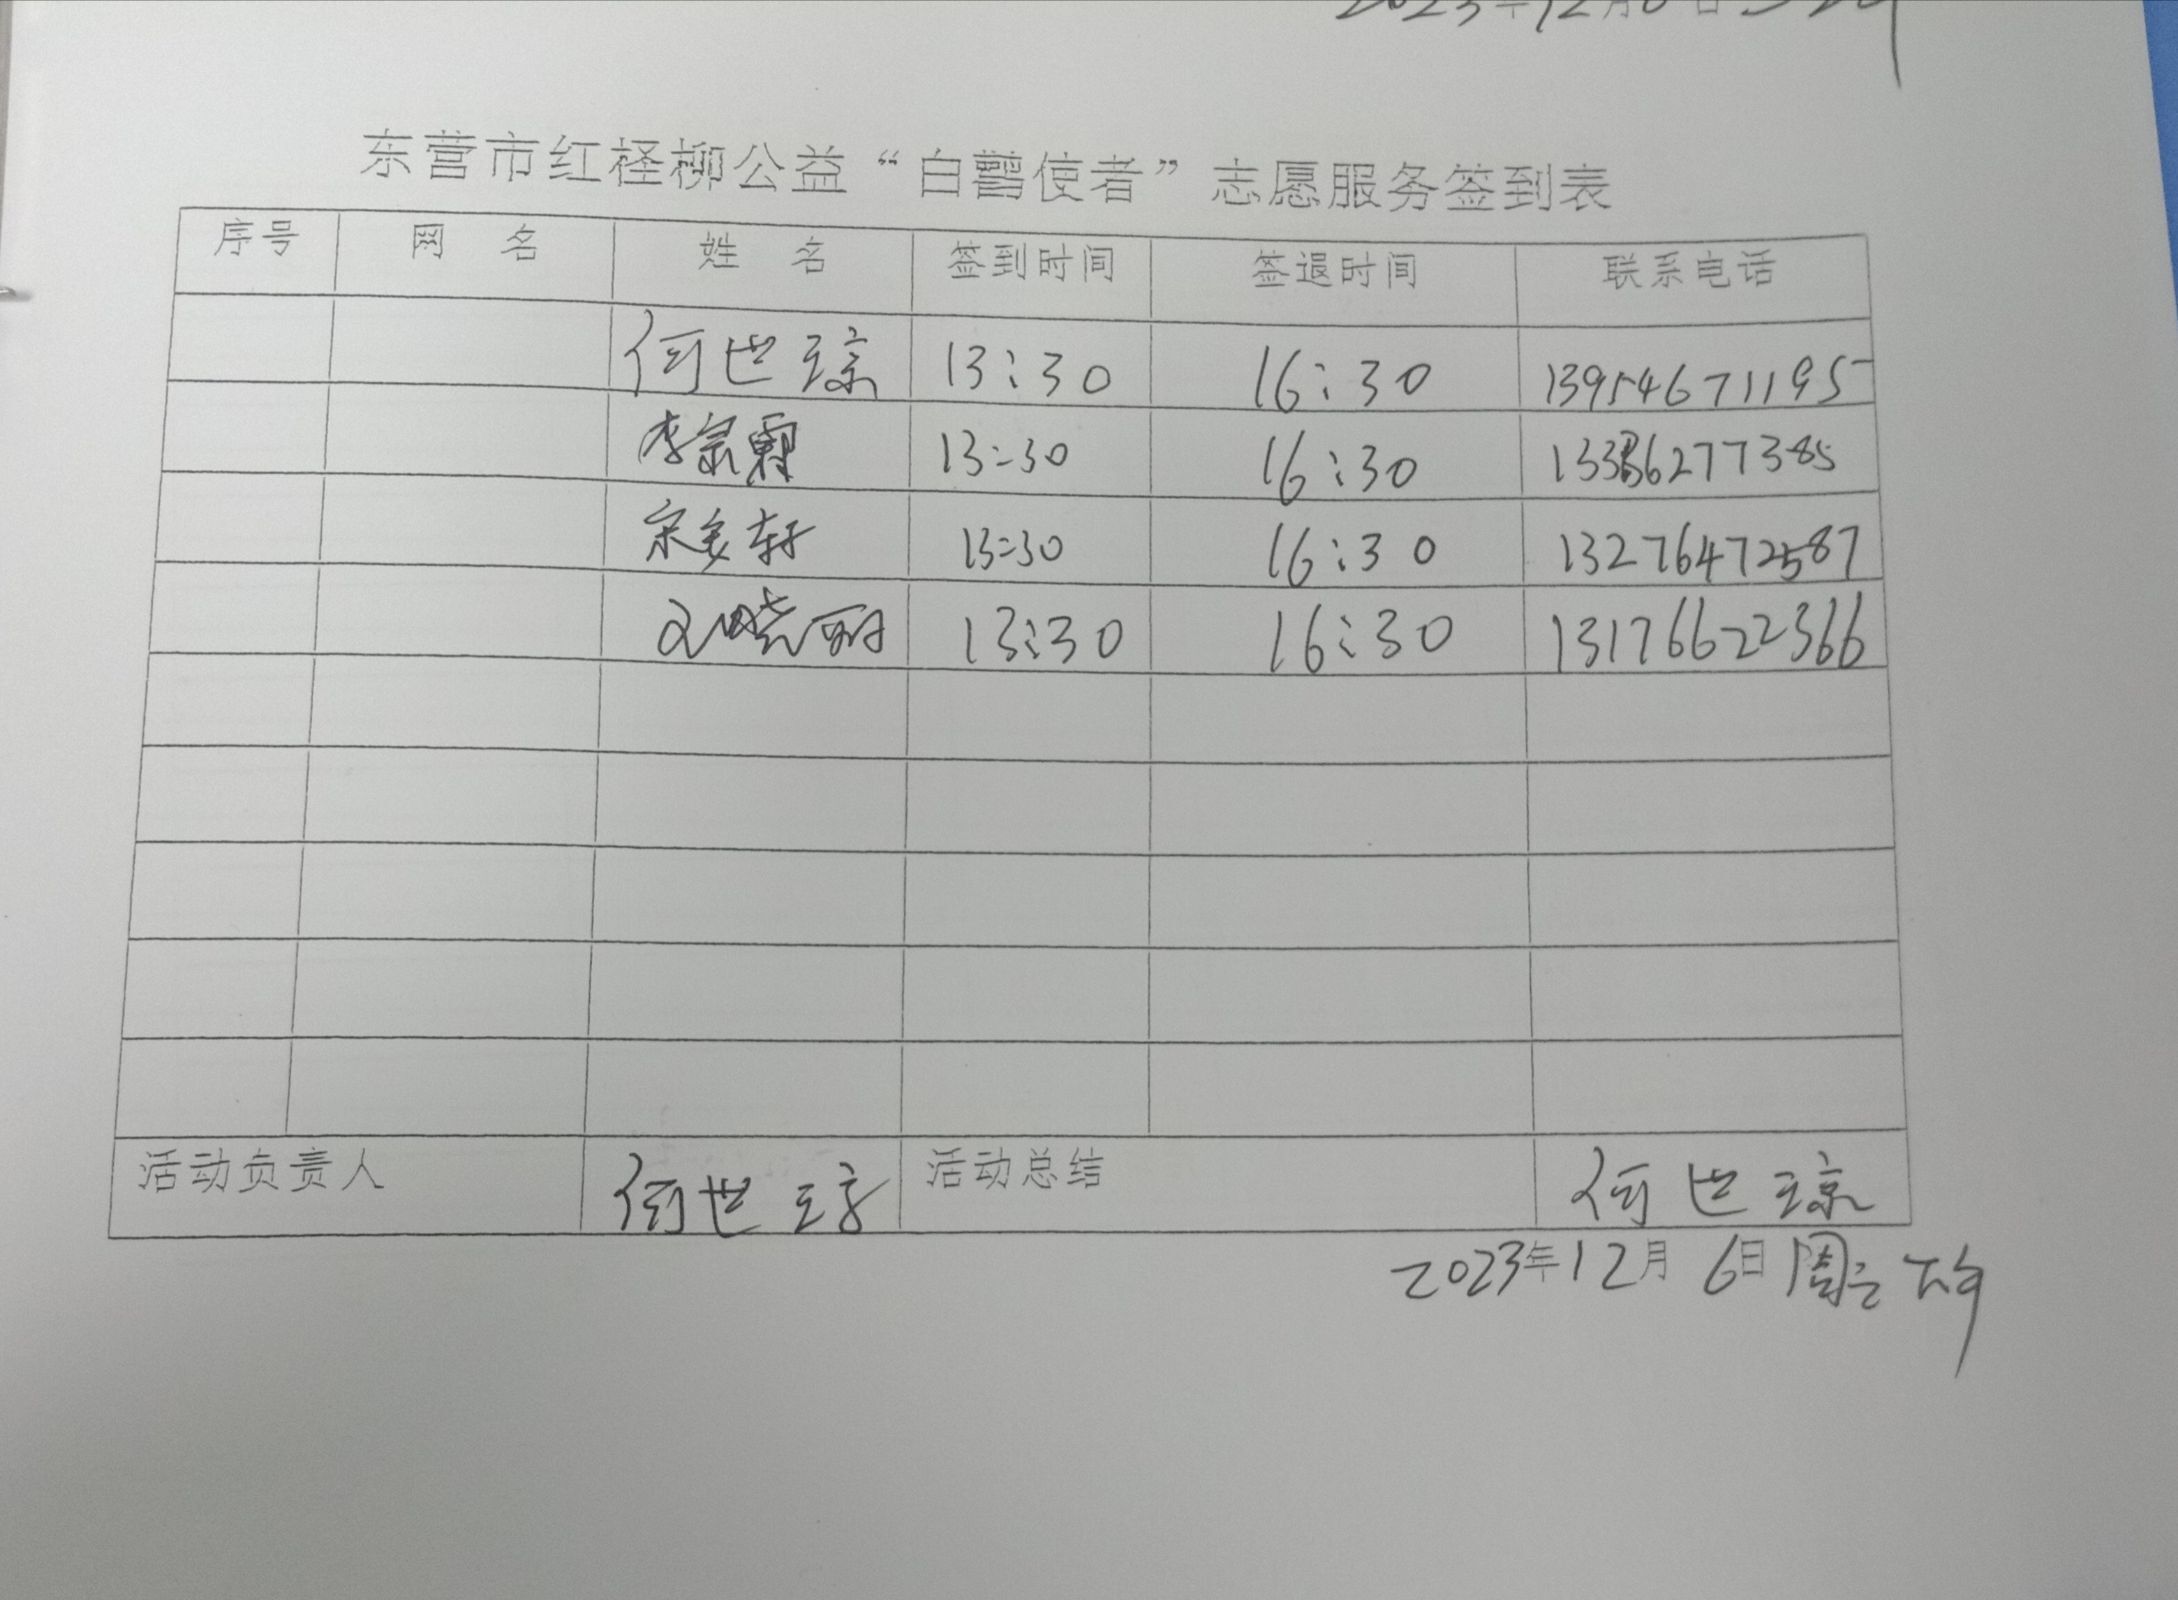 2023年12月6日
东营市红柽柳公益“白鹭使者”志愿服务签到表
序号 网 名 姓 名 签到时间 签退时间 联系电话
何世琼 13:30 16:30 13954671195
李宗霖 13:30 16:30 277385
宋 轩 13:30 16:30 13276472587
刘晓丽 13:30 16:30 13176622366
活动负责人 何世琼 活动总结 何世琼
2023年12月6日 周三 下午